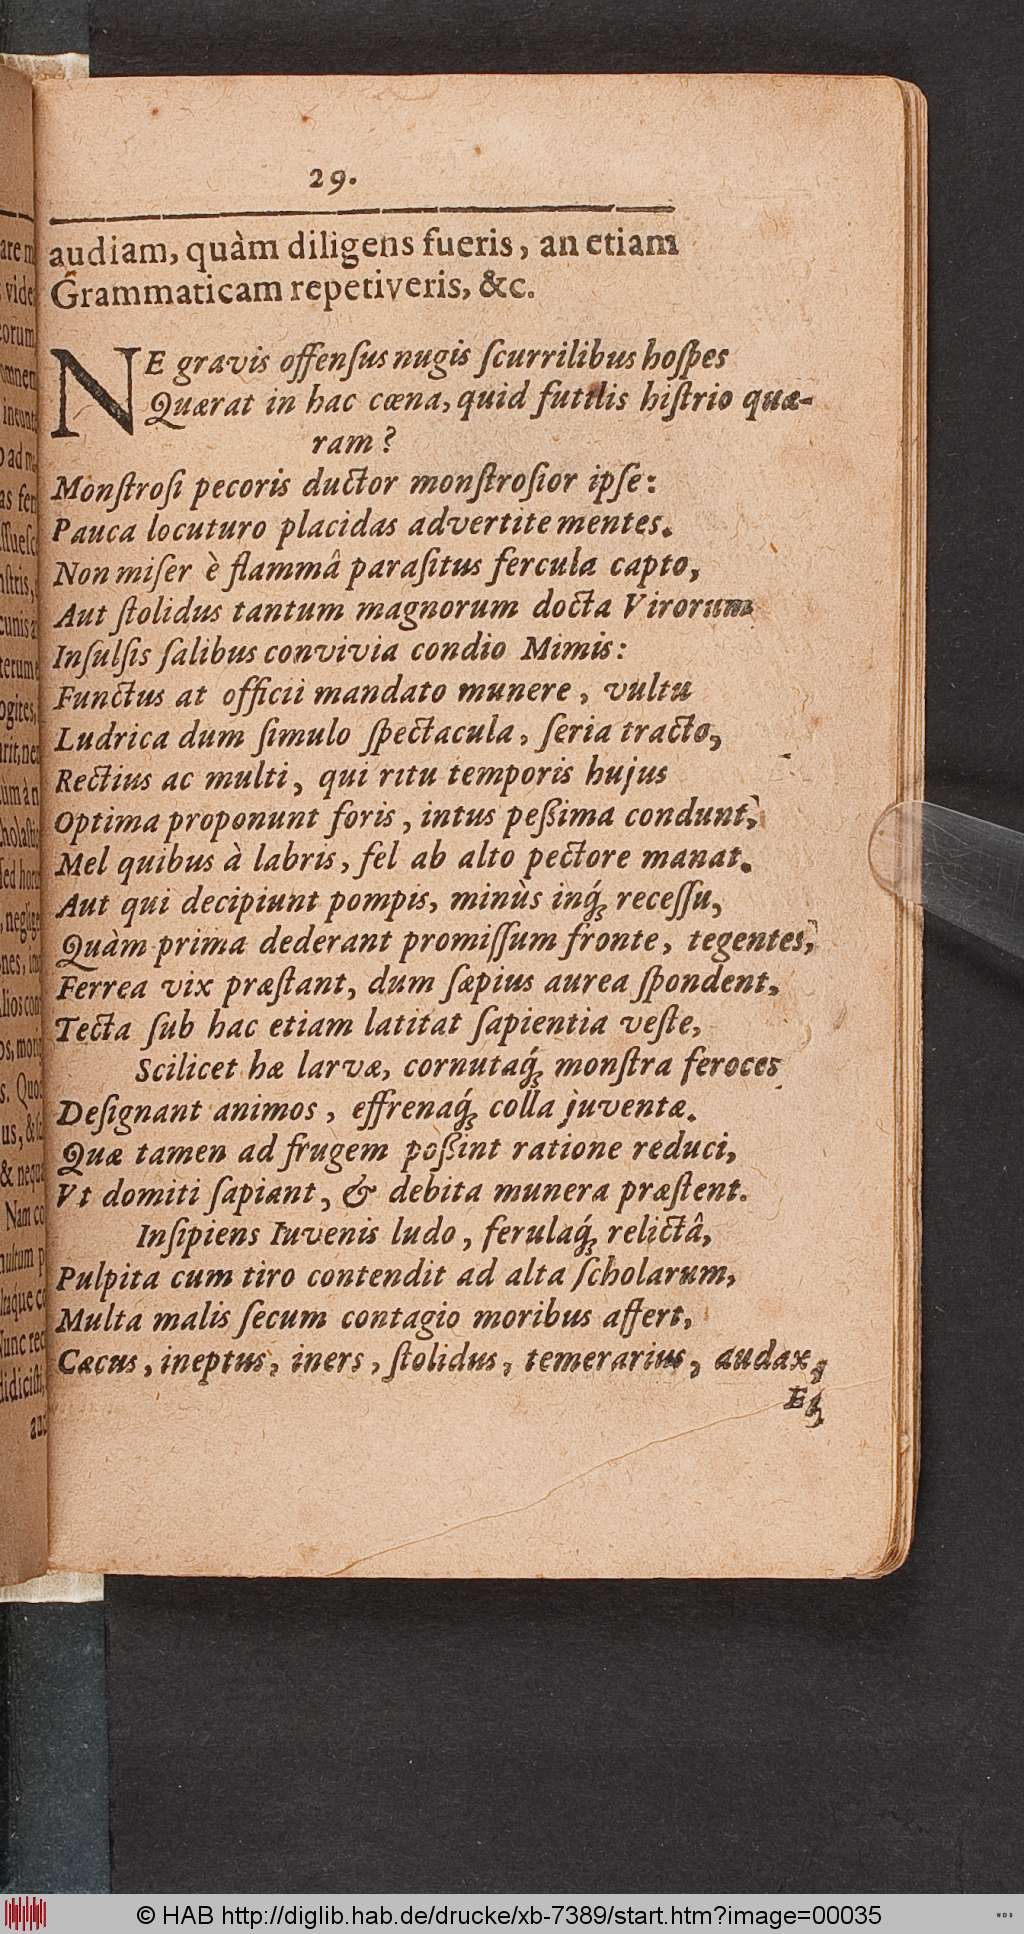 29.
audiam, quàm diligens fueris, an etiam
Grammaticam repetiveris, &c.
NE gravis offenſus nugis ſcurrilibus hoſpes
Quærat in hac cœna, quid futilis hiſtrio quæ-
ram?
Monſtroſi pecoris ductor monſtroſior ipſe:
Pauca locuturo placidas advertite mentes.
Non miſer è flammâ paraſitus fercula capto,
Aut ſtolidus tantum magnorum docta Virorum
Inſulſis ſalibus convivia condio Mimis:
Functus at officii mandato munere, vultu
Ludrica dum ſimulo ſpectacula, ſeria tracto,
Rectius ac multi, qui ritu temporis hujus
Optima proponunt foris, intus peßima condunt,
Mel quibus à labris, fel ab alto pectore manat.
Aut qui decipiunt pompis, minùs inq́ receſſu,
Quàm prima dederant promiſſum fronte, tegentes,
Ferrea vix præſtant, dum ſæpius aurea ſpondent,
Tecta ſub hac etiam latitat ſapientia veſte,
Scilicet hæ larvæ, cornutaq́ monſtra feroces
Deſignant animos, effrenaq́ colla juventæ.
Quæ tamen ad frugem poßint ratione reduci,
Vt domiti ſapiant, & debita munera præſtent.
Inſipiens Iuvenis ludo, ferulaq́ relictâ,
Pulpita cum tiro contendit ad alta ſcholarum,
Multa malis ſecum contagio moribus affert,
Cæcus, ineptus, iners, ſtolidus, temerarius, audax,
Eq́
© HAB http://diglib.hab.de/drucke/xb-7389/start.htm?image=00035